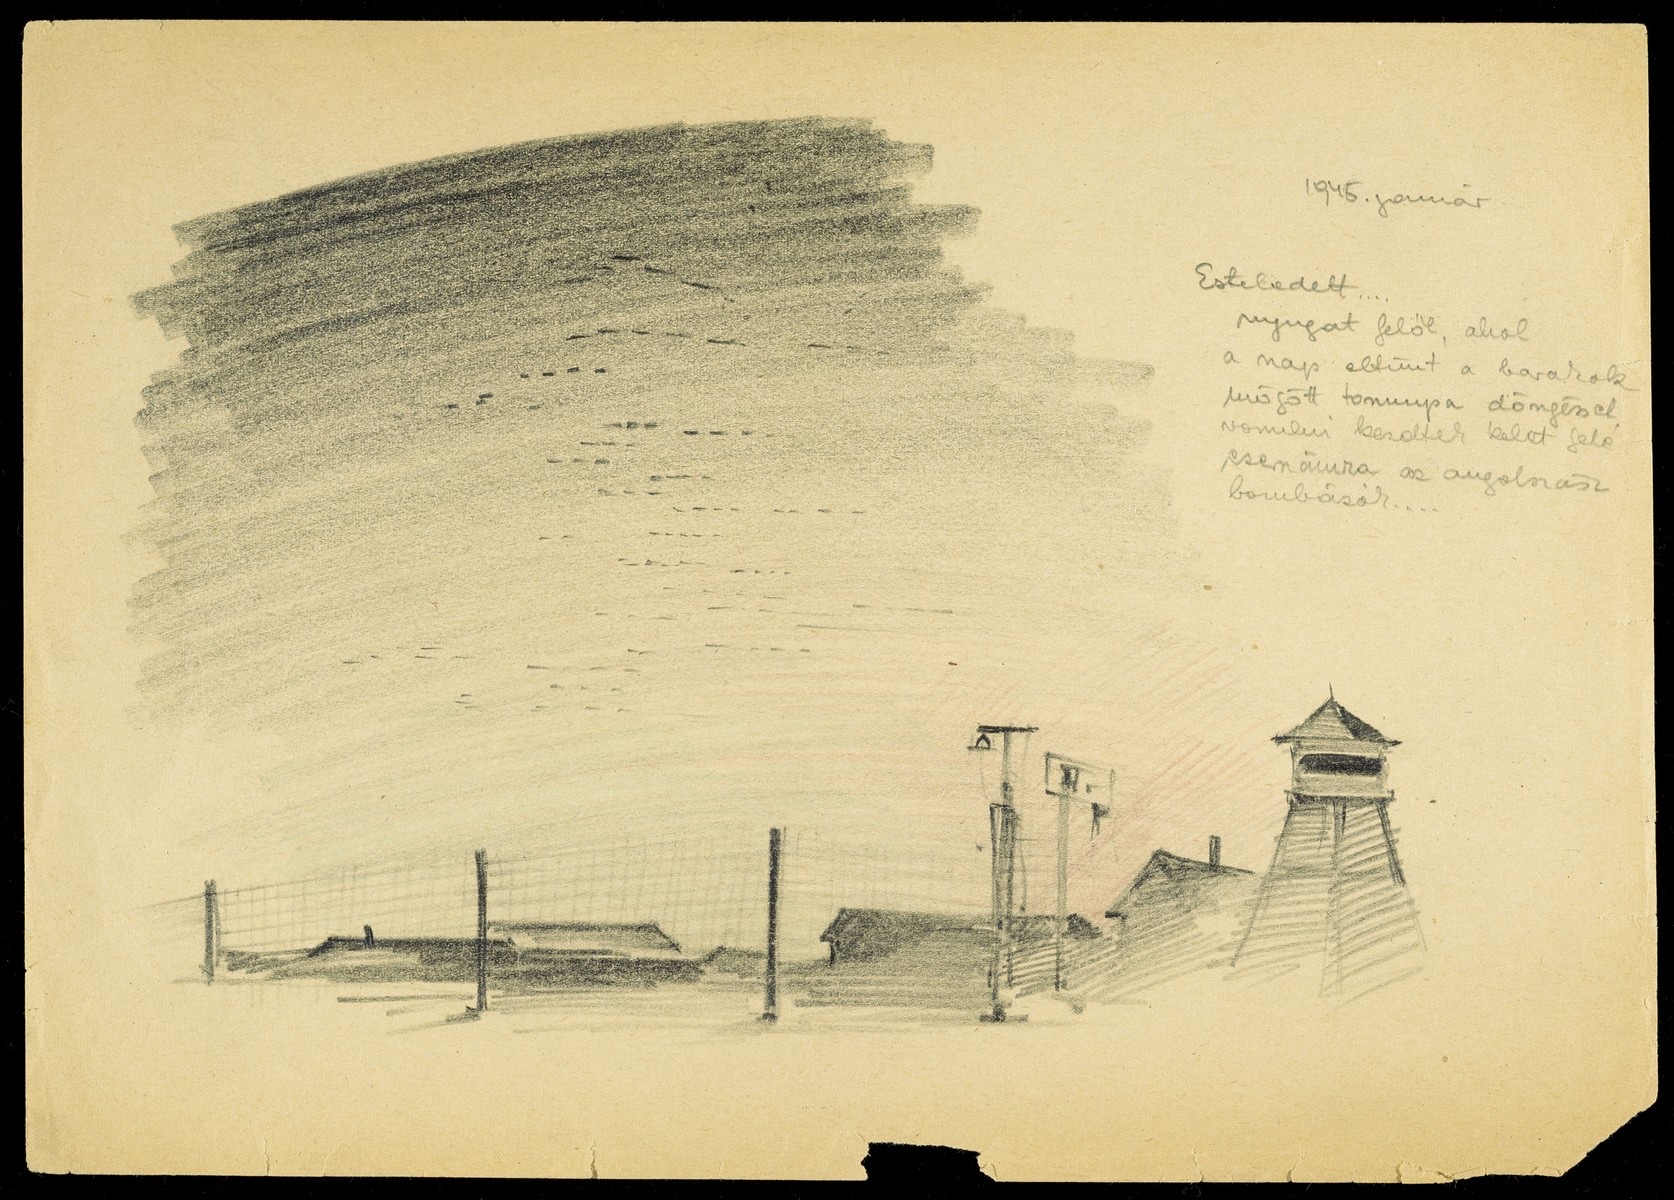 1945. január
Esteledett....
nyugat felöl, ahol
a nap eltünt a barakok
mögött tompa döngéssel
vonulni kezdtek kelet felé
az angolszász
bombázók....